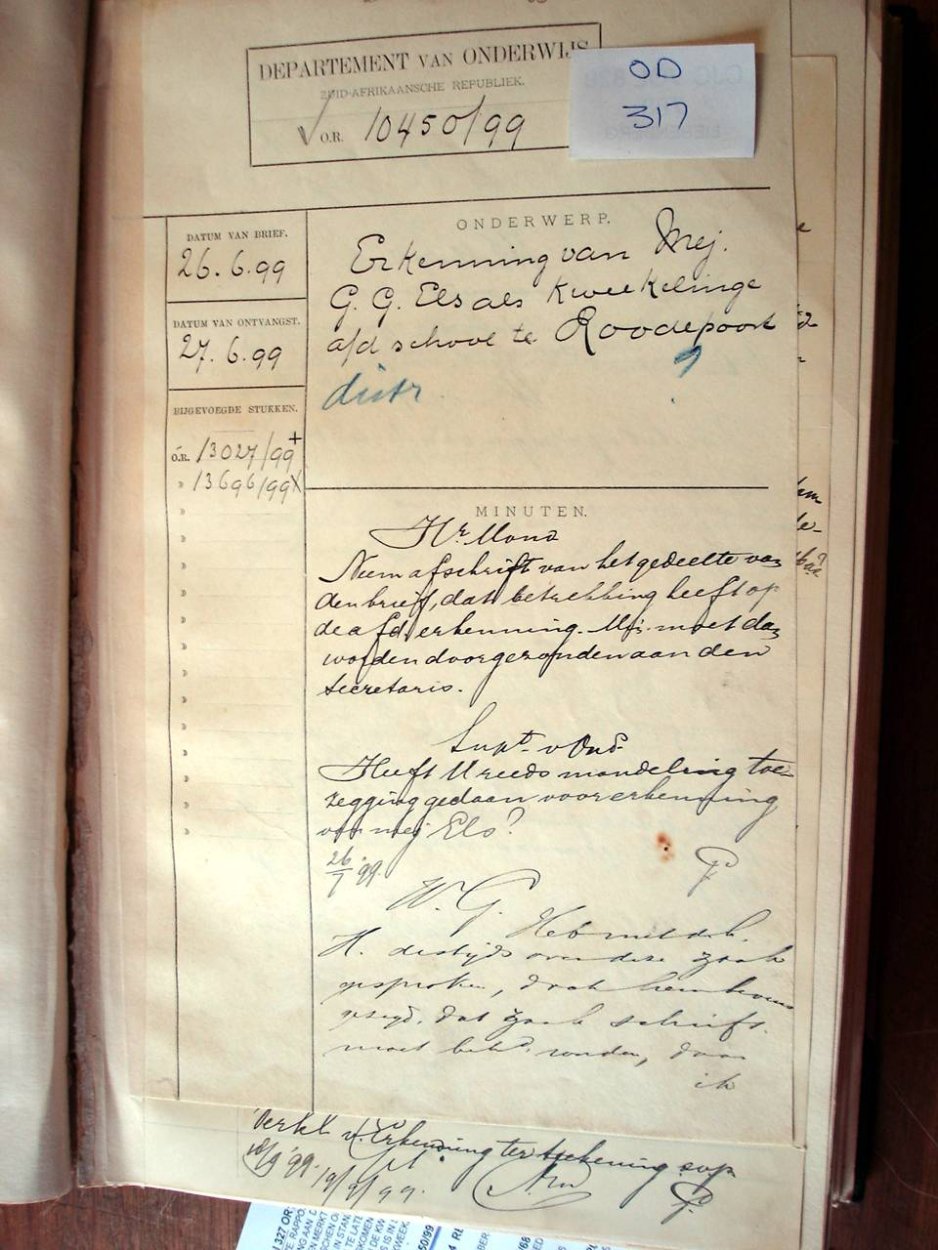 DEPARTEMENT VAN ONDERWIJS
ZUID-AFRIKAANSCHE REPUBLIEK.
O.R. 10450/99
OD
317
DATUM VAN BRIEF.
26.6.99
DATUM VAN ONTVANGST.
27.6.99
BIJGEVOEGDE STUKKEN.
O.R. 13027/99+
" 13696/99X
ONDERWERP.
Erkenning van Mej.
G. G. Els als Kweekelinge
a/d school te Roodepoort
distr.
MINUTEN.
Hr Mons
Neem afschrift van het gedeelte van
den brief, dat betrekking heeft op
de afd. erkenning. moet dan
worden doorgezonden aan den
Secretaris.
Supt. v Ond.
Heeft U reeds mondeling toe-
zegging gedaan voor erkenning
van mej Els?
26/7 '99.
W. G. Heb met d.
H. destijds over deze zaak
gesproken, doch hem
gezegd, dat zaak schrift.
moet worden, daar
ik
Verkl. v. Erkenning ter teekening svp
19/9/99.
327 OR
50/99